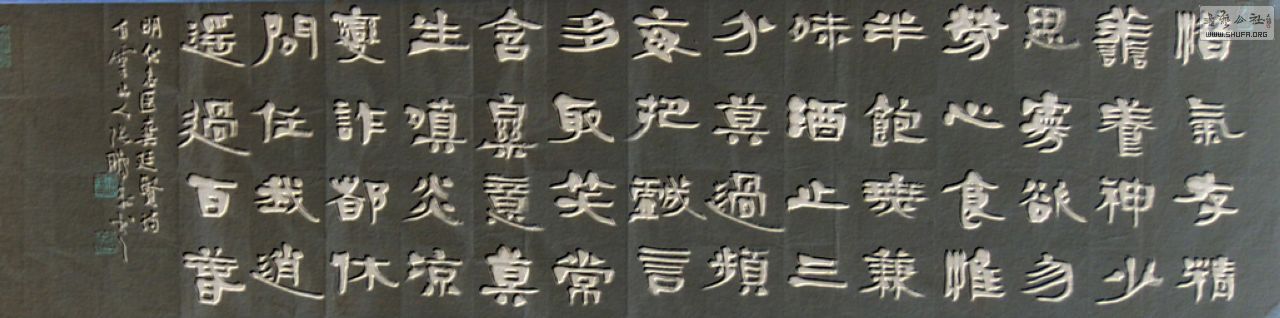 惜氣存精
譱養神少
思寡欲勿
勞心食惟
半飽無兼
味酒止三
分莫過頻
每把戲言
多取笑常
含樂意莫
生嗔炎涼
變詐都休
問任我逍
遙過百春
明代名医龔廷賢詩
雲山人
公社
WWW.SHUFA.ORG